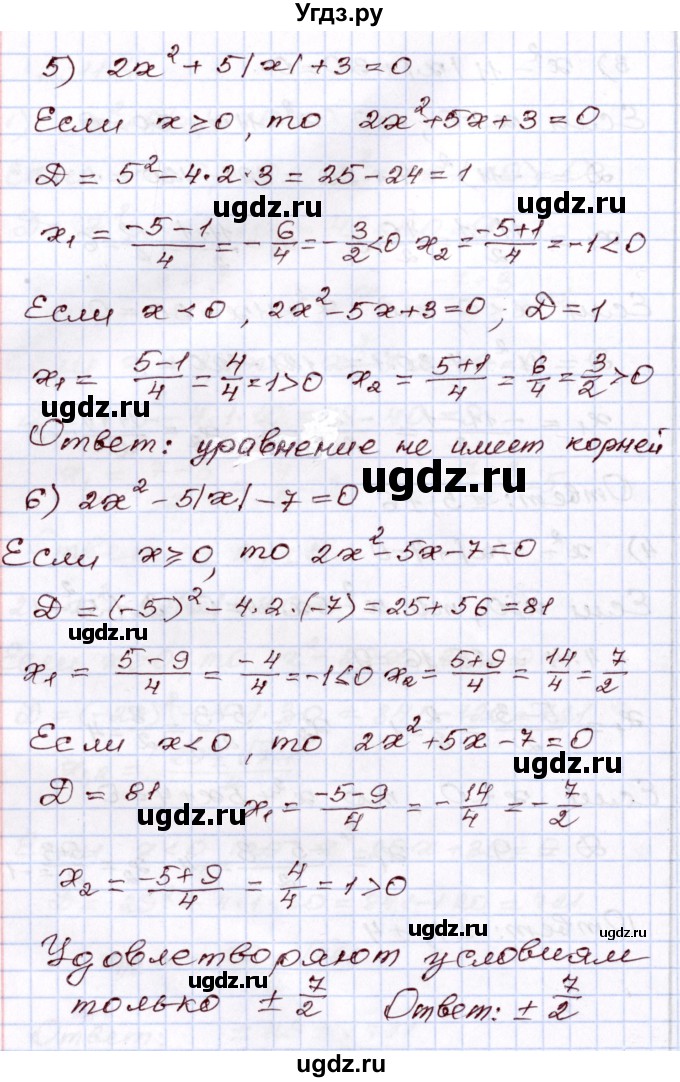 Угдз.ру
5) 2x² + 5|x| + 3 = 0
Если x ≥ 0, то 2x² + 5x + 3 = 0
Д = 5² - 4 · 2 · 3 = 25 - 24 = 1
ugdz.ru ugdz.ru
x₁ = (-5 - 1)/4 = -6/4 = -3/2 < 0 x₂ = (-5 + 1)/4 = -1 < 0
Если x < 0, 2x² - 5x + 3 = 0; Д = 1
x₁ = (5 - 1)/4 = 4/4 = 1 > 0 x₂ = (5 + 1)/4 = 6/4 = 3/2 > 0
ugdz.ru ugdz.ru
Ответ: уравнение не имеет корней
ugdz.ru
6) 2x² - 5|x| - 7 = 0
Если x ≥ 0, то 2x² - 5x - 7 = 0
Д = (-5)² - 4 · 2 · (-7) = 25 + 56 = 81
ugdz.ru
x₁ = (5 - 9)/4 = -4/4 = -1 < 0 x₂ = (5 + 9)/4 = 14/4 = 7/2
ugdz.ru
Если x < 0, то 2x² + 5x - 7 = 0
ugdz.ru
Д = 81 x₁ = (-5 - 9)/4 = -14/4 = -7/2
ugdz.ru
x₂ = (-5 + 9)/4 = 4/4 = 1 > 0
ugdz.ru
Удовлетворяют условиям
ugdz.ru
только ± 7/2 Ответ: ± 7/2
ugdz.ru ugdz.ru
ugdz.ru